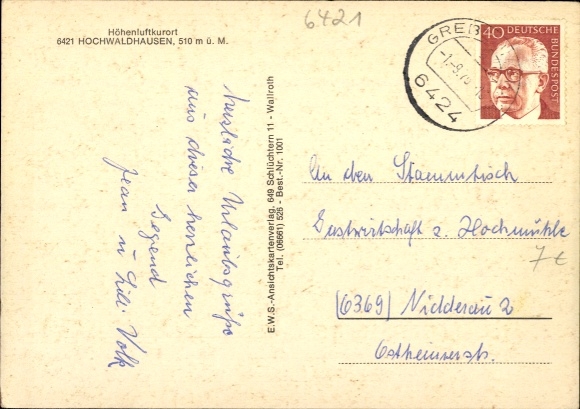 Höhenluftkurort
6421 HOCHWALDHAUSEN, 510 m ü. M.
6421
GREB
-1.-9.
6424
40 DEUTSCHE
BUNDESPOST
Herzliche Urlaubsgrüße
aus dieser herrlichen
Gegend
Jean u. Lilli Volk
E.W.S.-Ansichtskartenverlag, 649 Schlüchtern 11 - Wallroth
Tel. (06661) 526 - Best.-Nr. 1001
An den Stammtisch
Gastwirtschaft z. Hochmühle
7€
(6369) Nidderau 2
Ostheimerstr.